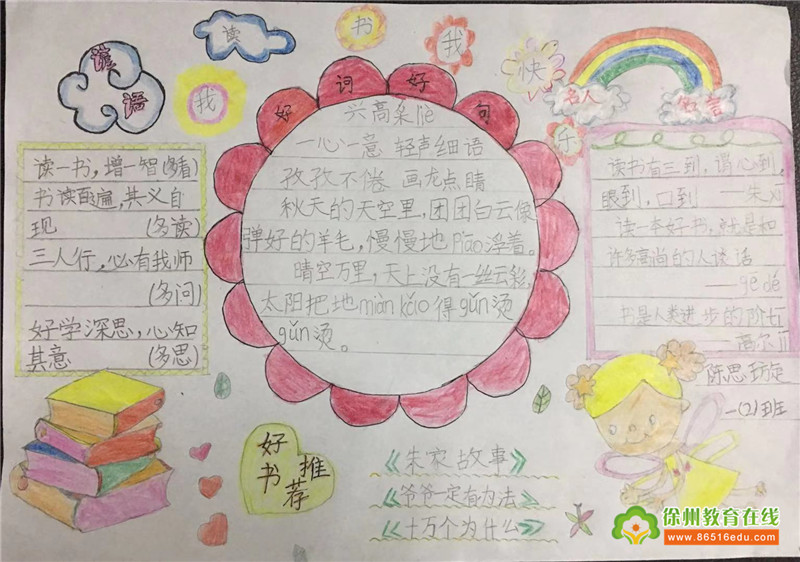 我读书我快乐
谚语
读一书，增一智(多看)
书读百遍，其义自
现 (多读)
三人行，必有我师
(多问)
好学深思，心知
其意 (多思)
好词好句
兴高采liè
一心一意 轻声细语
孜孜不倦 画龙点睛
秋天的天空里，团团白云像
弹好的羊毛，慢慢地Piāo浮着。
晴空万里，天上没有一丝云彩，
太阳把地miàn kǎo得gǔn烫
gǔn烫。
名人名言
读书有三到，谓心到，
眼到，口到 ——朱xī
读一本好书，就是和
许多高尚的人谈话
——gē dé
书是人类进步的阶tī
——高尔jī
陈思
一(2)班
好书推荐
《朱家故事》
《爷爷一定有办法》
《十万个为什么》
徐州教育在线
www.86516edu.com